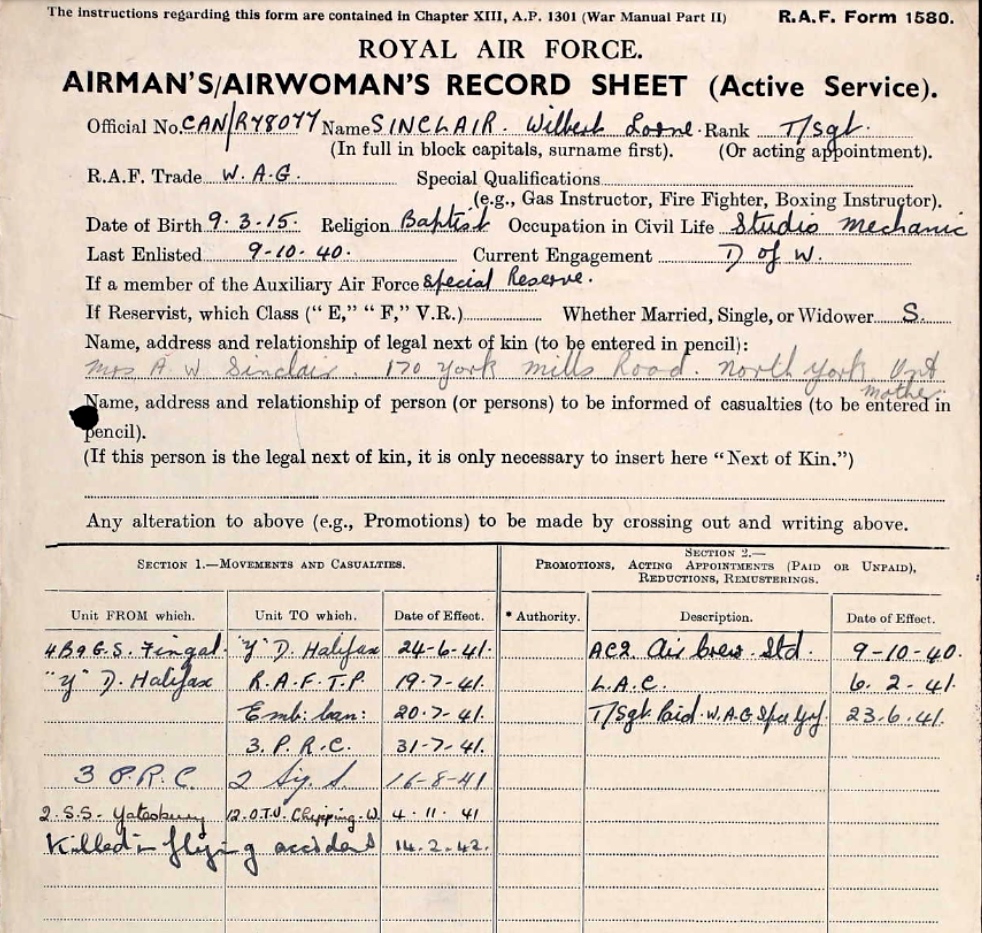 The instructions regarding this form are contained in Chapter XIII, A.P. 1301 (War Manual Part II) R.A.F. Form 1580.
ROYAL AIR FORCE.
AIRMAN'S/AIRWOMAN'S RECORD SHEET (Active Service).
Official No. CAN/R78077 Name SINCLAIR. Wilbert Lorne. Rank T/Sgt.
(In full in block capitals, surname first). (Or acting appointment).
R.A.F. Trade W.A.G. Special Qualifications
(e.g., Gas Instructor, Fire Fighter, Boxing Instructor).
Date of Birth 9.3.15. Religion Baptist Occupation in Civil Life Studio Mechanic
Last Enlisted 9-10-40. Current Engagement D of W.
If a member of the Auxiliary Air Force Special Reserve.
If Reservist, which Class ("E," "F," V.R.) Whether Married, Single, or Widower S.
Name, address and relationship of legal next of kin (to be entered in pencil):
Mrs A. W Sinclair. 170 York Mills Road. North York Ont
mother.
Name, address and relationship of person (or persons) to be informed of casualties (to be entered in
pencil).
(If this person is the legal next of kin, it is only necessary to insert here "Next of Kin.")
Any alteration to above (e.g., Promotions) to be made by crossing out and writing above.
SECTION 1.—MOVEMENTS AND CASUALTIES. SECTION 2.—
PROMOTIONS, ACTING APPOINTMENTS (PAID OR UNPAID),
REDUCTIONS, REMUSTERINGS.
Unit FROM which. Unit TO which. Date of Effect. * Authority. Description. Date of Effect.
4 B & G.S. Fingal. "Y" D. Halifax 24-6-41. AC2. Air Crew. Std. 9-10-40.
"Y" D. Halifax R.A.F.T.P. 19.7-41. L.A.C. 6.2-41.
Emb: Can: 20.7-41. T/Sgt. Paid. W.A.G. 23.6.41.
3. P.R.C. 31-7-41.
3 P.R.C. 2 Sig. S. 16-8-41
2.S.S. Yatesbury 12.O.T.U. Chipping-W. 4.11.41
Killed in flying accident 14.2.42.